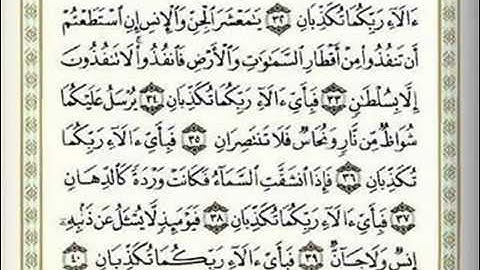 ءَالَآءِ رَبِّكُمَا تُكَذِّبَانِ ٣٢ يَٰمَعۡشَرَ ٱلۡجِنِّ وَٱلۡإِنسِ إِنِ ٱسۡتَطَعۡتُمۡ
أَن تَنفُذُواْ مِنۡ أَقۡطَارِ ٱلسَّمَٰوَٰتِ وَٱلۡأَرۡضِ فَٱنفُذُواْۚ لَا تَنفُذُونَ
إِلَّا بِسُلۡطَٰنٖ ٣٣ فَبِأَيِّ ءَالَآءِ رَبِّكُمَا تُكَذِّبَانِ ٣٤ يُرۡسَلُ عَلَيۡكُمَا
شُوَاظٞ مِّن نَّارٖ وَنُحَاسٞ فَلَا تَنتَصِرَانِ ٣٥ فَبِأَيِّ ءَالَآءِ رَبِّكُمَا
تُكَذِّبَانِ ٣٦ فَإِذَا ٱنشَقَّتِ ٱلسَّمَآءُ فَكَانَتۡ وَرۡدَةٗ كَٱلدِّهَانِ
٣٧ فَبِأَيِّ ءَالَآءِ رَبِّكُمَا تُكَذِّبَانِ ٣٨ فَيَوۡمَئِذٖ لَّا يُسۡـَٔلُ عَن ذَنۢبِهِۦٓ
إِنسٞ وَلَا جَآنّٞ ٣٩ فَبِأَيِّ ءَالَآءِ رَبِّكُمَا تُكَذِّبَانِ ٤٠